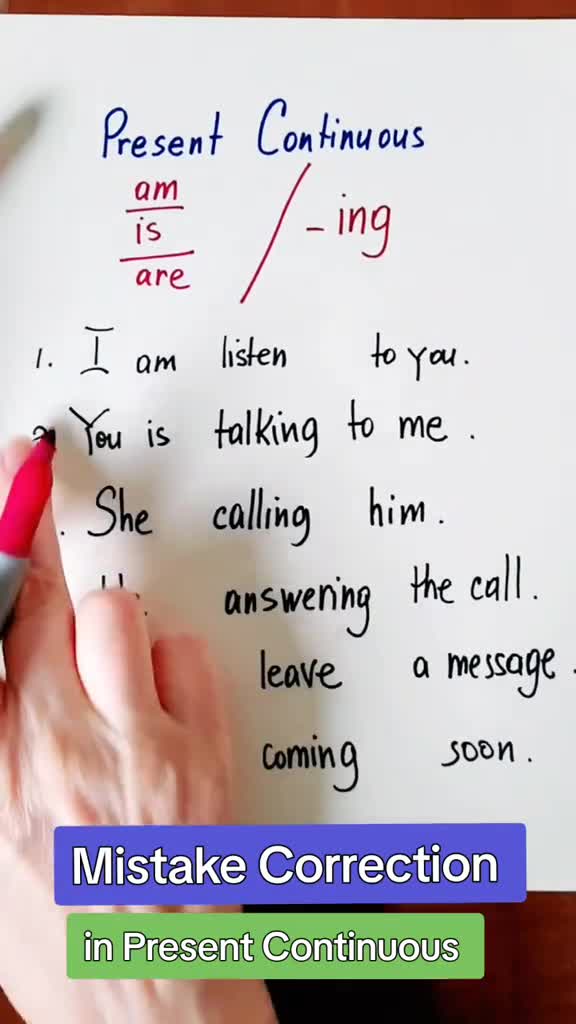 Present Continuous
am
is
are
- ing
1. I am listen to you.
You is talking to me.
She calling him.
answering the call.
leave a message.
coming soon.
Mistake Correction
in Present Continuous